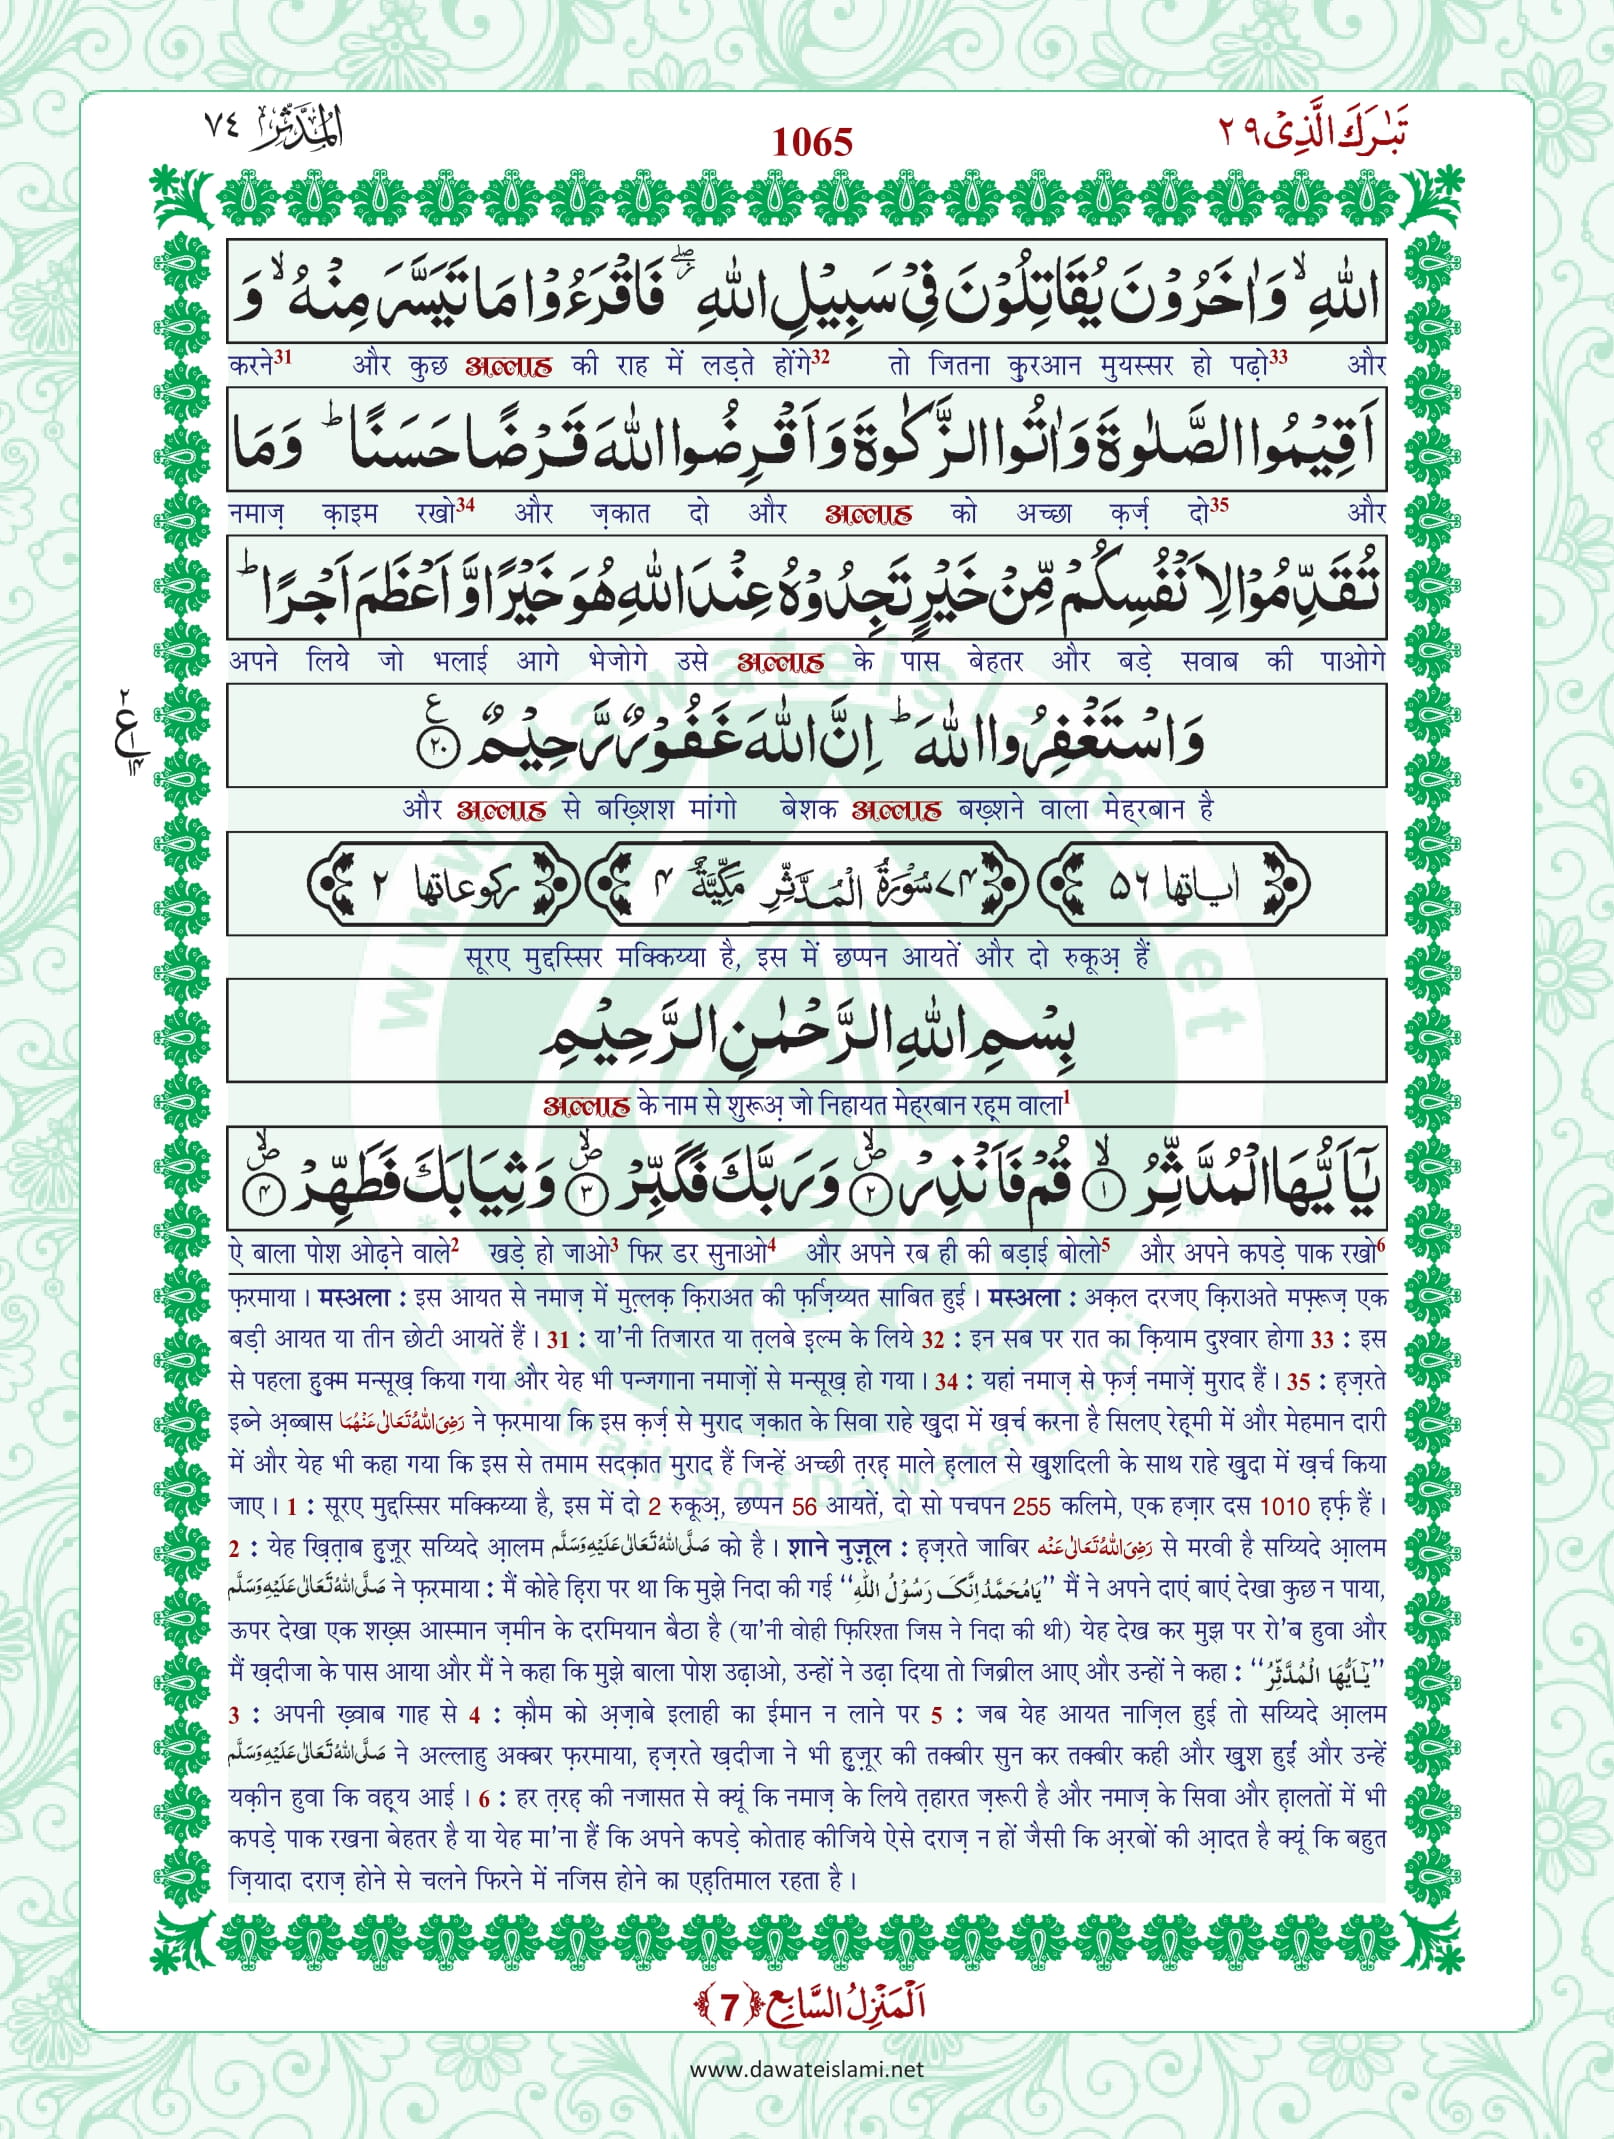 المُدَّثِّر ٧٤
1065
تَبٰرَكَ الَّذِیْ ٢٩
اللّٰهِ ۙ وَاٰخَرُوْنَ یُقَاتِلُوْنَ فِیْ سَبِیْلِ اللّٰهِ ۖ٘ فَاقْرَءُوْا مَا تَیَسَّرَ مِنْهُ ۙ وَ
करने31 और कुछ अल्लाह की राह में लड़ते होंगे32 तो जितना कु़रआन मुयस्सर हो पढ़ो33 और
اَقِیْمُوا الصَّلٰوةَ وَاٰتُوا الزَّكٰوةَ وَاَقْرِضُوا اللّٰهَ قَرْضًا حَسَنًا ؕ وَمَا
नमाज़ क़ाइम रखो34 और ज़कात दो और अल्लाह को अच्छा क़र्ज़ दो35 और
تُقَدِّمُوْا لِاَنْفُسِكُمْ مِّنْ خَیْرٍ تَجِدُوْهُ عِنْدَ اللّٰهِ هُوَ خَیْرًا وَّاَعْظَمَ اَجْرًا ؕ
अपने लिये जो भलाई आगे भेजोगे उसे अल्लाह के पास बेहतर और बड़े सवाब की पाओगे
وَاسْتَغْفِرُوا اللّٰهَ ؕ اِنَّ اللّٰهَ غَفُوْرٌ رَّحِیْمٌ ۠ ﴿٢٠﴾
ع ٢ ١٤
और अल्लाह से बख़्शिश मांगो बेशक अल्लाह बख़्शने वाला मेह्रबान है
اٰیاتها ٥٦ ٧٤ سُوْرَةُ الْمُدَّثِّرِ مَكِّیَّةٌ ٤ ركوعاتها ٢
सूरए मुद्दस्सिर मक्किय्या है, इस में छप्पन आयतें और दो रुकूअ़ हैं
بِسْمِ اللّٰهِ الرَّحْمٰنِ الرَّحِیْمِ
अल्लाह के नाम से शुरूअ़ जो निहायत मेह्रबान रह़्म वाला1
یٰۤاَیُّهَا الْمُدَّثِّرُ ۙ﴿١﴾ قُمْ فَاَنْذِرْ ۪ۙ﴿٢﴾ وَرَبَّكَ فَكَبِّرْ ۪ۙ﴿٣﴾ وَثِیَابَكَ فَطَهِّرْ ۪ۙ﴿٤﴾
ऐ बाला पोश ओढ़ने वाले2 खड़े हो जाओ3 फिर डर सुनाओ4 और अपने रब ही की बड़ाई बोलो5 और अपने कपड़े पाक रखो6
फ़रमाया। मस्अला : इस आयत से नमाज़ में मुत़्लक़ क़िराअत की फ़र्ज़िय्यत साबित हुई। मस्अला : अक़ल दरजए क़िराअते मफ़्रूज़ एक
बड़ी आयत या तीन छोटी आयतें हैं। 31 : या'नी तिजारत या त़लबे इल्म के लिये 32 : इन सब पर रात का क़ियाम दुश्वार होगा 33 : इस
से पहला हुक्म मन्सूख़ किया गया और येह भी पन्जगाना नमाज़ों से मन्सूख़ हो गया। 34 : यहां नमाज़ से फ़र्ज़ नमाज़ें मुराद हैं। 35 : ह़ज़रते
इब्ने अ़ब्बास رَضِیَ اللّٰهُ تَعَالٰی عَنْهُمَا ने फ़रमाया कि इस क़र्ज़ से मुराद ज़कात के सिवा राहे खु़दा में ख़र्च करना है सिलए रेह़्मी में और मेहमान दारी
में और येह भी कहा गया कि इस से तमाम सदक़ात मुराद हैं जिन्हें अच्छी त़रह़ माले ह़लाल से खु़शदिली के साथ राहे खु़दा में ख़र्च किया
जाए। 1 : सूरए मुद्दस्सिर मक्किय्या है, इस में दो 2 रुकूअ़, छप्पन 56 आयतें, दो सो पचपन 255 कलिमे, एक हज़ार दस 1010 ह़र्फ़ हैं।
2 : येह ख़ित़ाब हु़ज़ूर सय्यिदे आ़लम صَلَّی اللّٰهُ تَعَالٰی عَلَیْهِ وَسَلَّم को है। शाने नुज़ूल : ह़ज़रते जाबिर رَضِیَ اللّٰهُ تَعَالٰی عَنْه से मरवी है सय्यिदे आ़लम
صَلَّی اللّٰهُ تَعَالٰی عَلَیْهِ وَسَلَّم ने फ़रमाया : मैं कोहे ह़िरा पर था कि मुझे निदा की गई ''یَامُحَمَّدُ اِنَّکَ رَسُوْلُ اللّٰهِ'' मैं ने अपने दाएं बाएं देखा कुछ न पाया,
ऊपर देखा एक शख़्स आस्मान ज़मीन के दरमियान बैठा है (या'नी वोही फ़िरिश्ता जिस ने निदा की थी) येह देख कर मुझ पर रो'ब हुवा और
मैं ख़दीजा के पास आया और मैं ने कहा कि मुझे बाला पोश उढ़ाओ, उन्हों ने उढ़ा दिया तो जिब्रील आए और उन्हों ने कहा : ''یٰۤاَیُّهَا الْمُدَّثِّرُ''
3 : अपनी ख़्वाब गाह से 4 : क़ौम को अ़ज़ाबे इलाही का ईमान न लाने पर 5 : जब येह आयत नाज़िल हुई तो सय्यिदे आ़लम
صَلَّی اللّٰهُ تَعَالٰی عَلَیْهِ وَسَلَّم ने अल्लाहु अक्बर फ़रमाया, ह़ज़रते ख़दीजा ने भी हु़ज़ूर की तक्बीर सुन कर तक्बीर कही और खु़श हुईं और उन्हें
यक़ीन हुवा कि वह़्य आई। 6 : हर त़रह़ की नजासत से क्यूं कि नमाज़ के लिये त़हारत ज़रूरी है और नमाज़ के सिवा और ह़ालतों में भी
कपड़े पाक रखना बेहतर है या येह मा'ना हैं कि अपने कपड़े कोताह कीजिये ऐसे दराज़ न हों जैसी कि अ़रबों की आ़दत है क्यूं कि बहुत
ज़ियादा दराज़ होने से चलने फिरने में नजिस होने का एह़तिमाल रहता है।
اَلْمَنْزِلُ السَّابِع ﴿7﴾
www.dawateislami.net